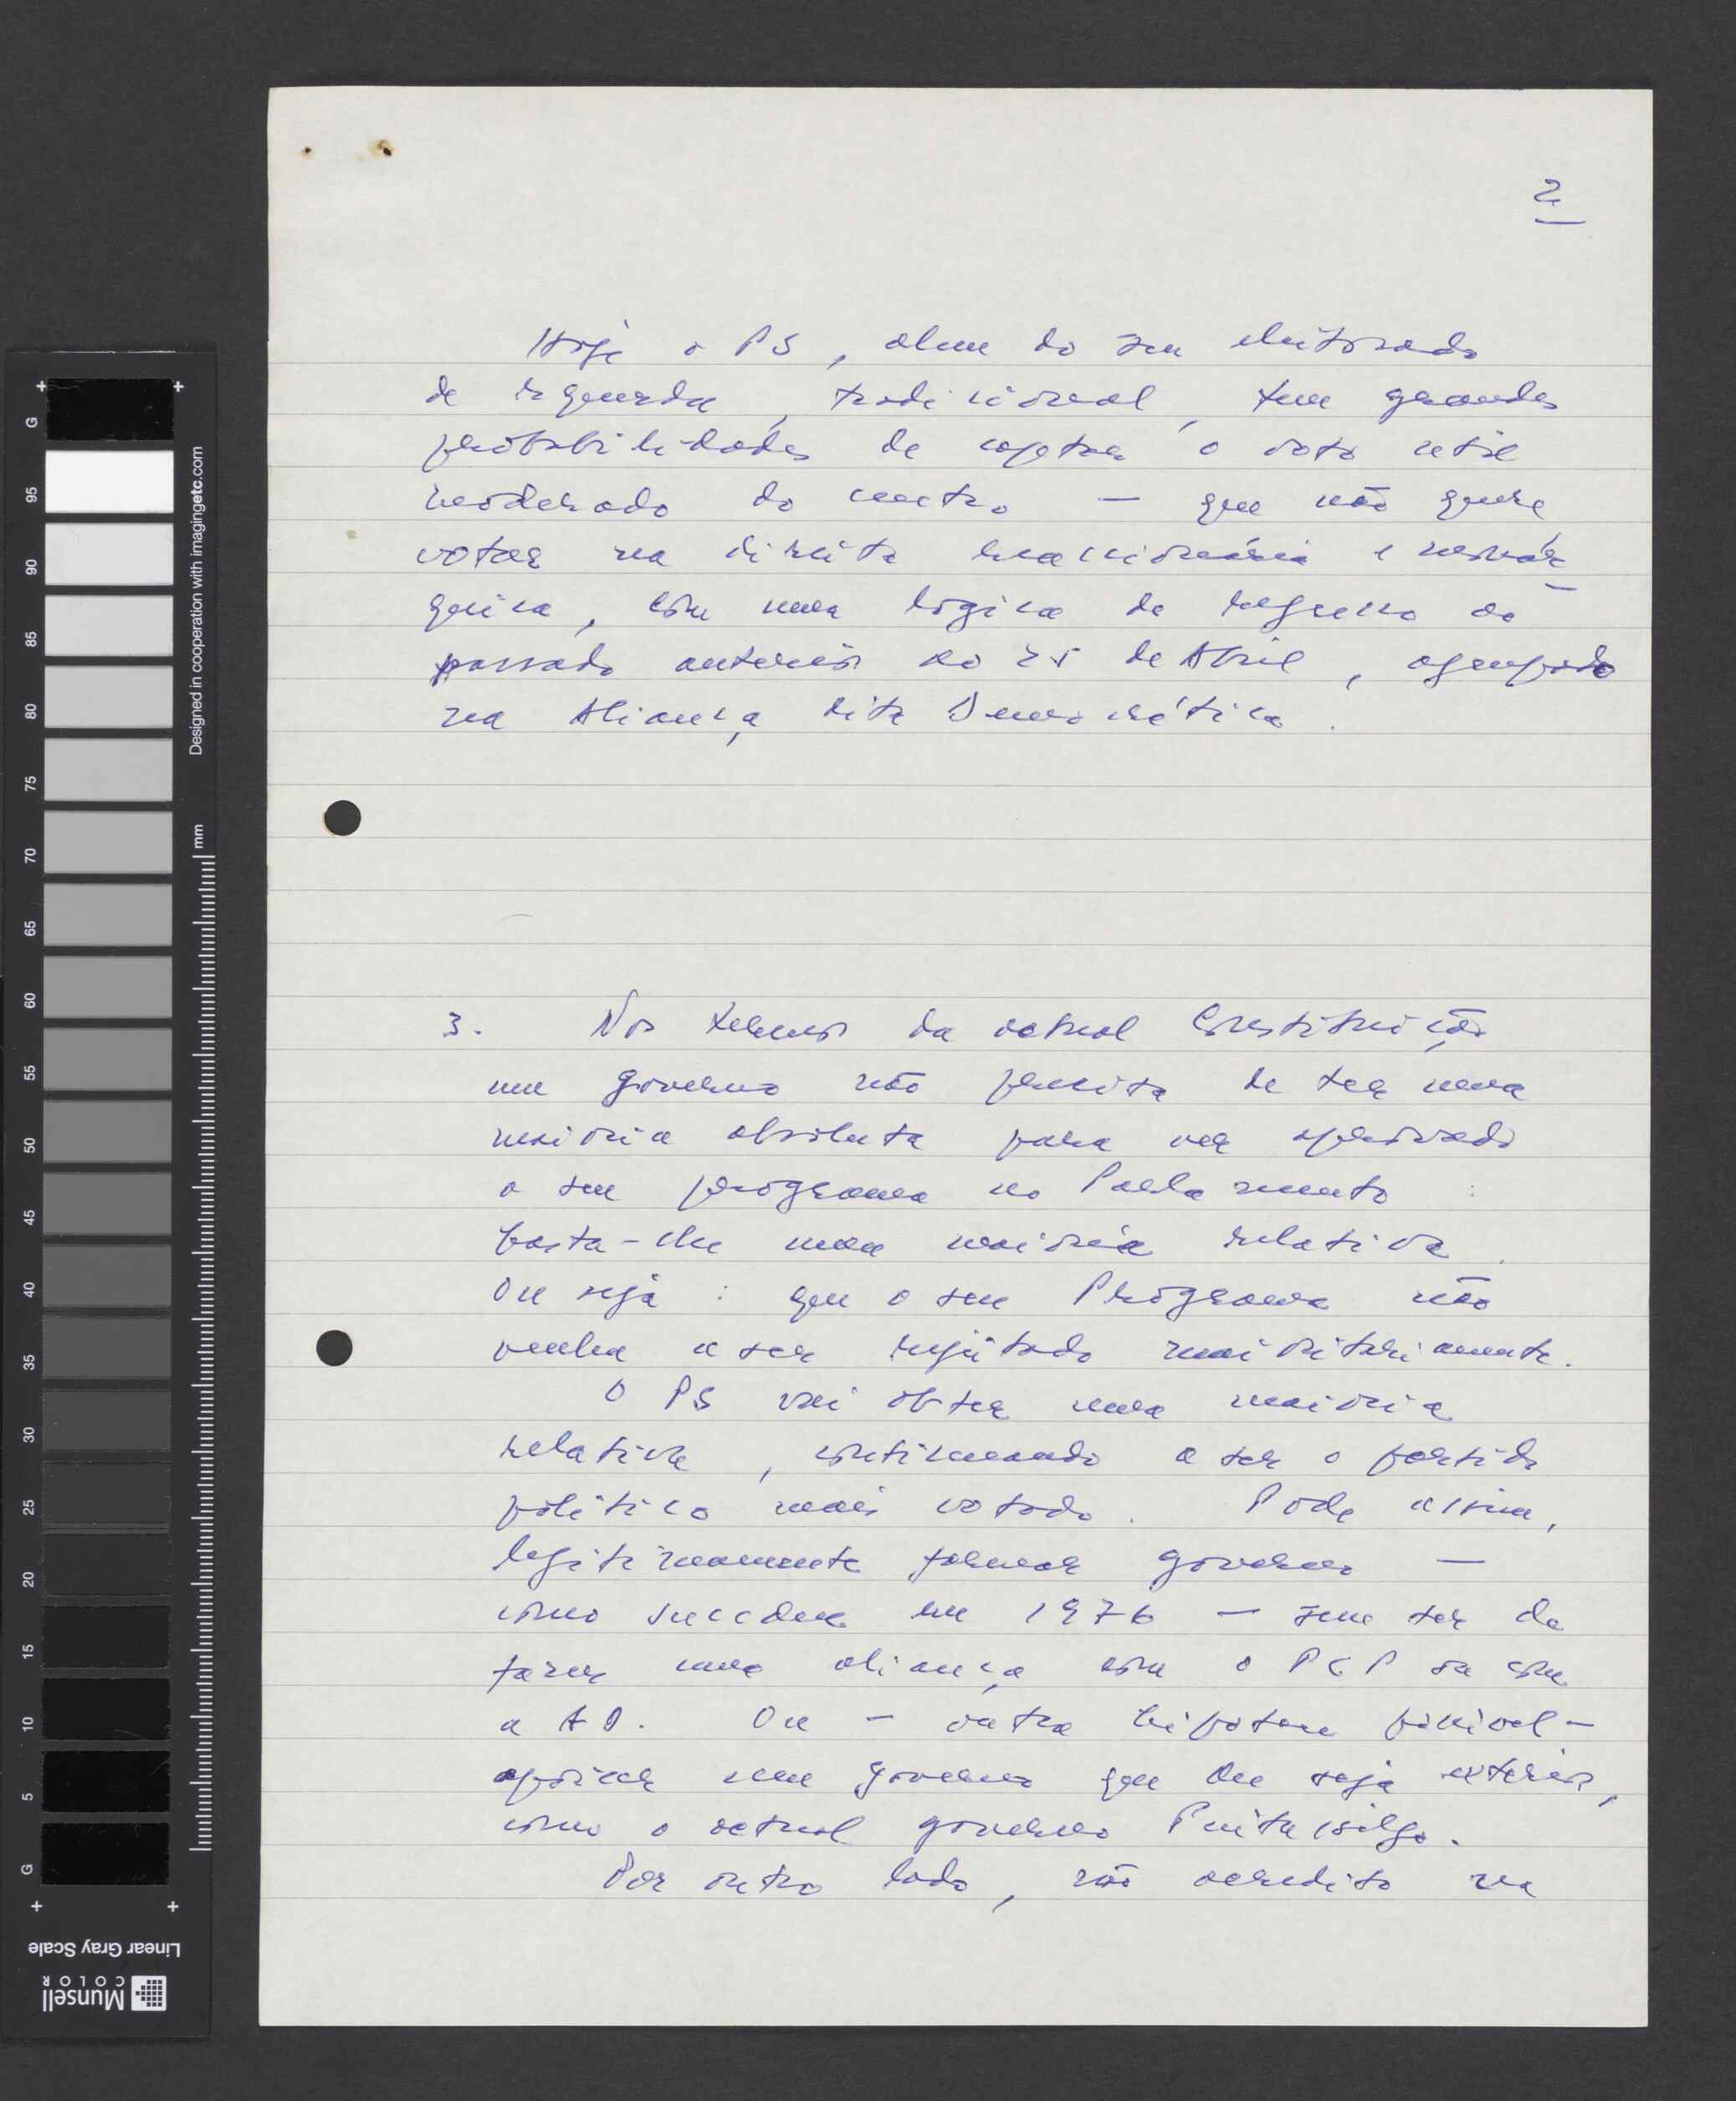 2
Hoje o PS, alem do seu eleitorado
de esquerda, tradicional, tem grandes
probabilidades de captar o voto util
moderado do centro — que não quere
votar na direita reaccionária e monár-
quica, com uma lógica de regresso ao
passado anterior ao 25 de Abril, agrupado
na Aliança dita Democrática.
3. Nos termos da actual Constituição
um governo não precisa de ter uma
maioria absoluta para ver aprovado
o seu programa no Parlamento :
basta-lhe uma maioria relativa.
Ou seja : que o seu Programa não
venha a ser rejeitado maioritariamente.
O PS vai obter uma maioria
relativa, continuando a ser o partido
político mais votado. Pode assim,
legitimamente formar governo —
como sucedeu em 1976 — sem ter de
fazer uma aliança com o PCP ou com
a AD. Ou — outra hipotese possivel —
apoiar um governo que lhe seja exterior,
como o actual governo Pintasilgo.
Por outro lado, não acredito na
G
95
90
85
80
75
70
65
60
55
50
45
40
35
30
25
20
15
10
5
G
Designed in cooperation with imagingetc.com
mm
Linear Gray Scale
Munsell
COLOR